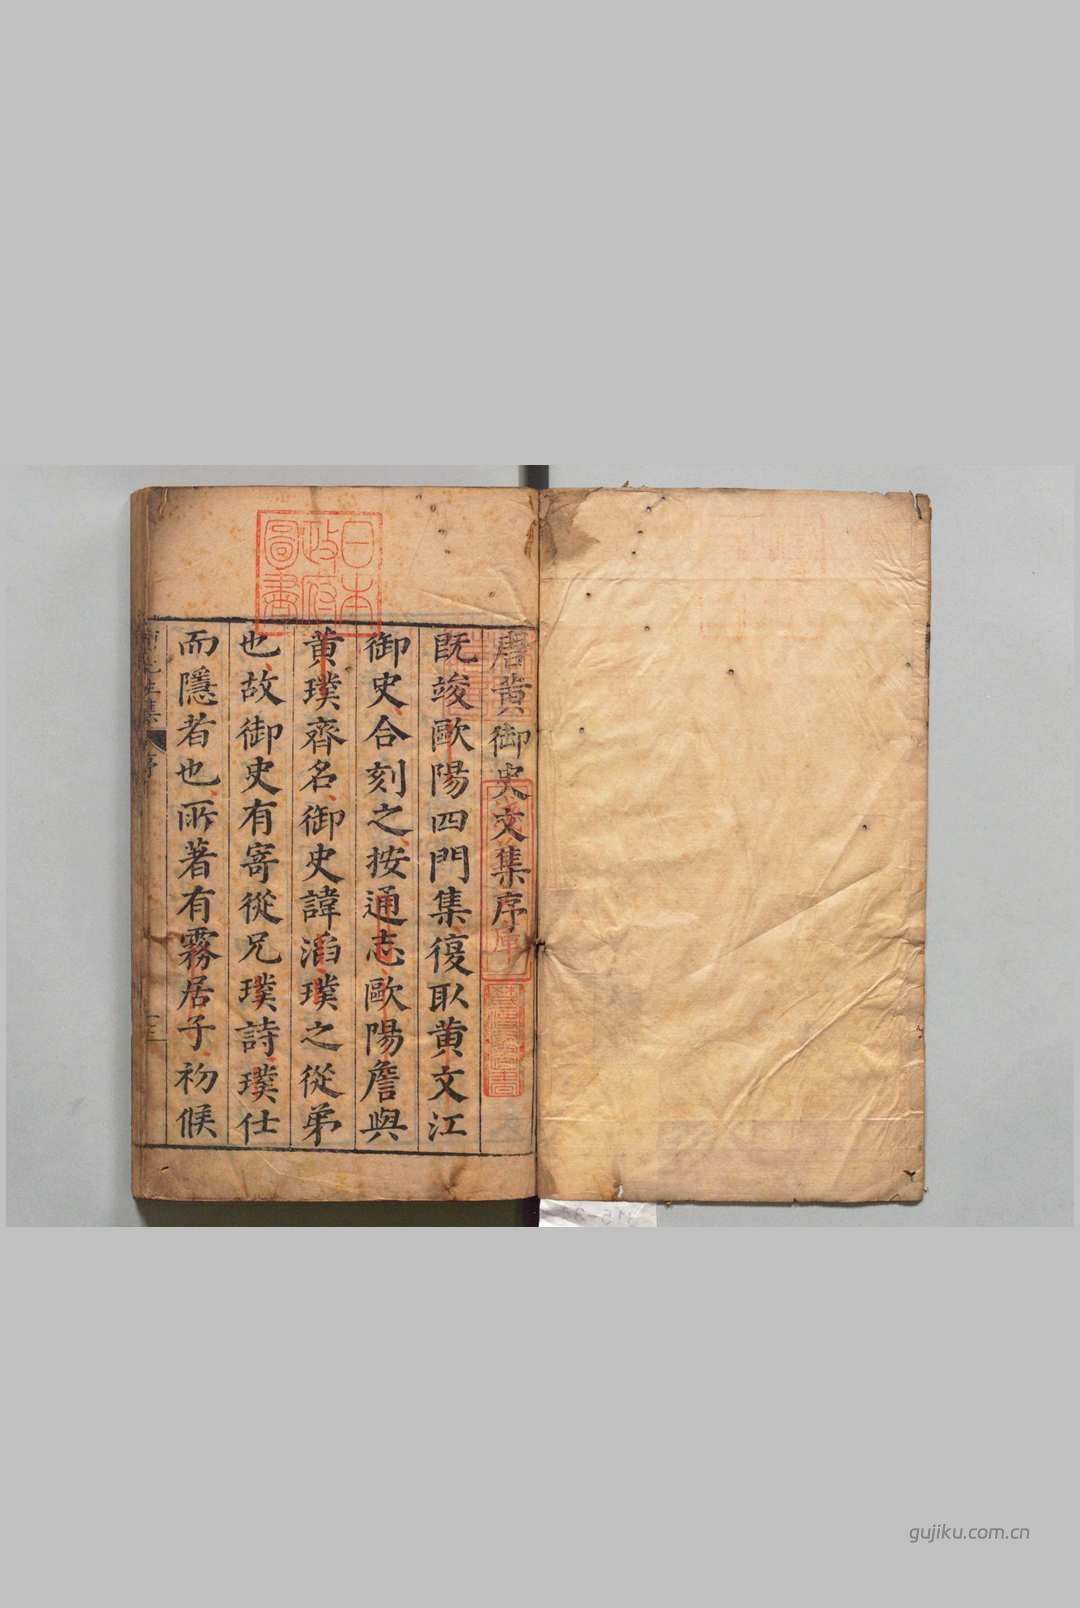 唐黄御史文集序
既竣歐陽四門集復取黄文江
御史合刻之按通志歐陽詹與
黄璞齊名御史諱滔璞之從弟
也故御史有寄從兄璞詩璞仕
而隱者也所著有霧居子初候
日本
政府
圖書
gujiku.com.cn